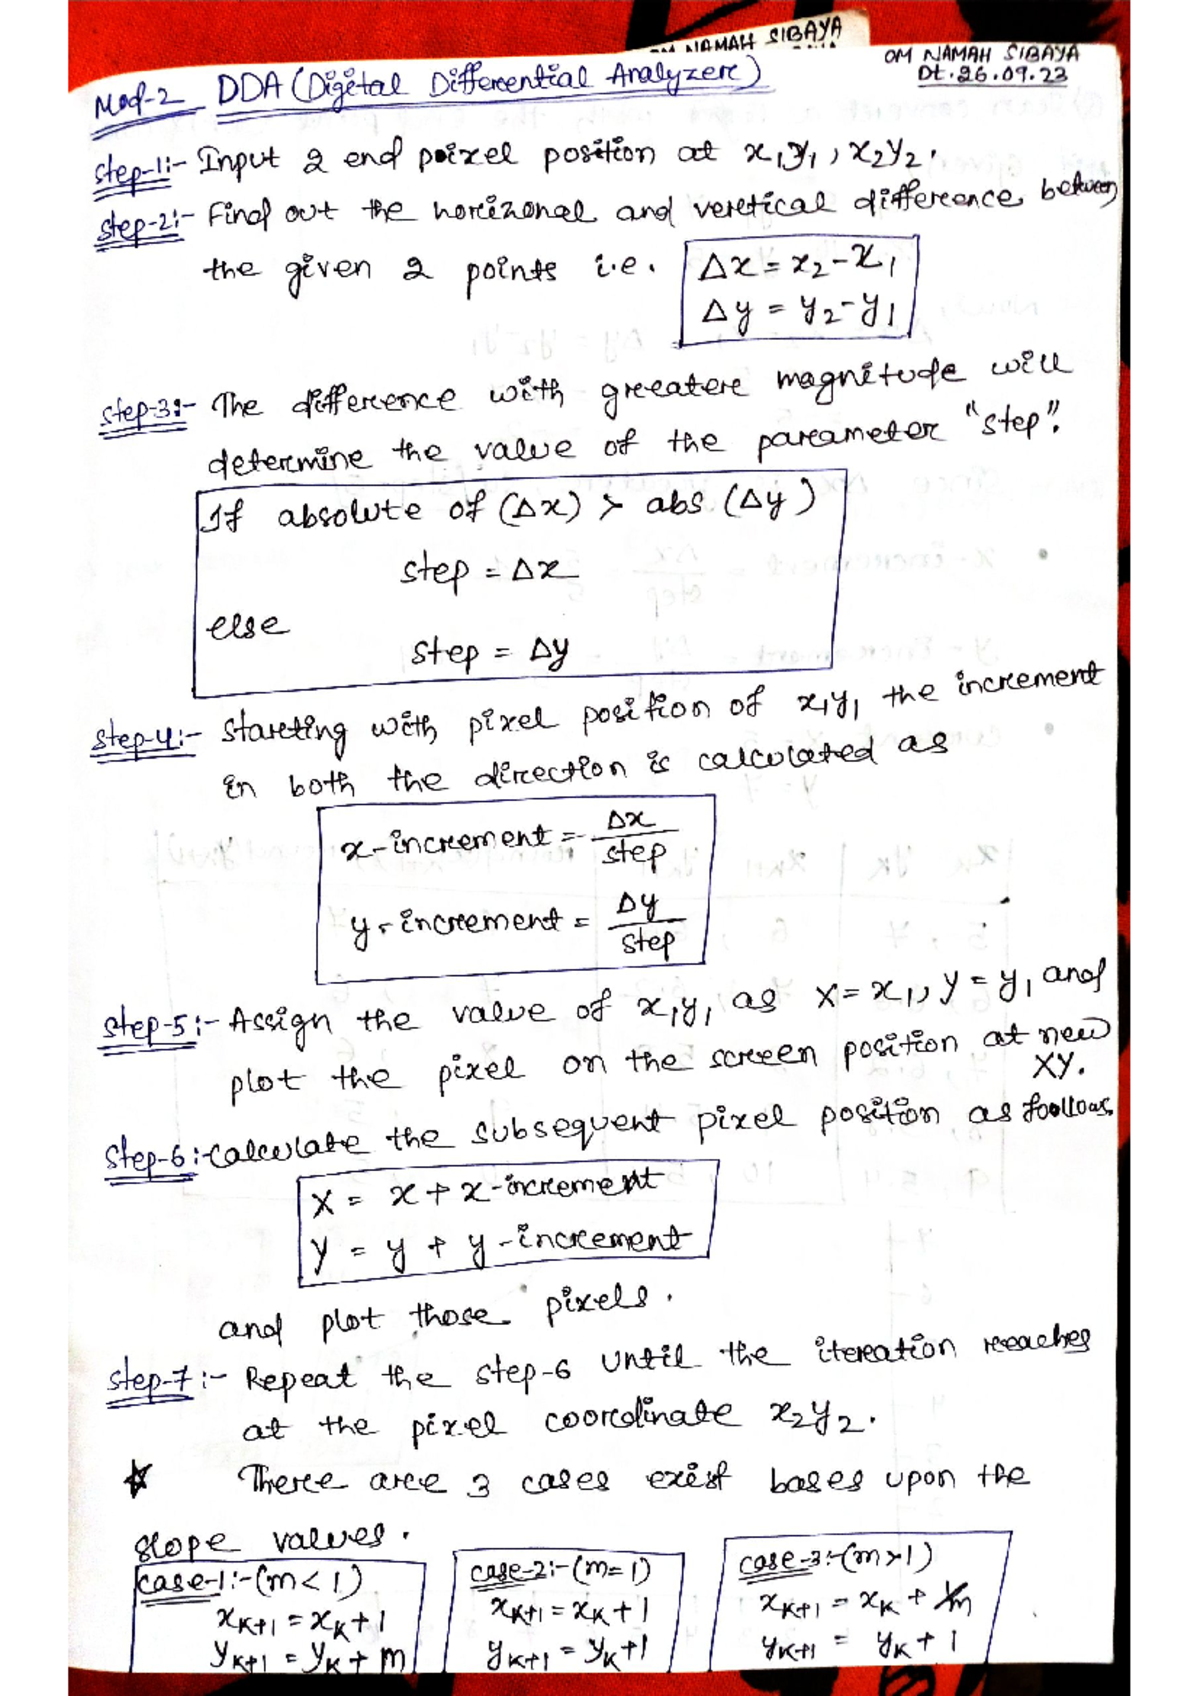 OM NAMAH SIBAYA
OM NAMAH SIBAYA
Dt.26.09.23
Mod-2 DDA (Digital Differential Analyzer)
step-1:- Input 2 end pixel position at x₁y₁, x₂y₂.
step-2:- Find out the horizonal and veretical difference between
the given 2 points i.e. Δx = x₂-x₁
Δy = y₂-y₁
step-3:- The difference with greeatere magnitude will
determine the value of the parameter "step".
If absolute of (Δx) > abs (Δy)
step = Δx
else
step = Δy
step-4:- Stareting with pixel position of x₁y₁ the increment
in both the direction is calculated as
x-increment = Δx/step
y-increment = Δy/step
step-5:- Assign the value of x₁y₁ as X=x₁, Y=y₁ and
plot the pixel on the screen position at new
XY.
step-6:- calculate the subsequent pixel position as foollows
X = x + x-increment
Y = y + y-increment
and plot those pixels.
step-7:- Repeat the step-6 until the itereation reeaches
at the pixel coordinate x₂y₂.
☆ There aree 3 cases exist bases upon the
slope values.
case-1:-(m<1)
xK+1 = xK+1
yK+1 = yK+m
case-2:-(m=1)
xK+1 = xK+1
yK+1 = yK+1
case-3:-(m>1)
xK+1 = xK + 1/m
yK+1 = yK+1